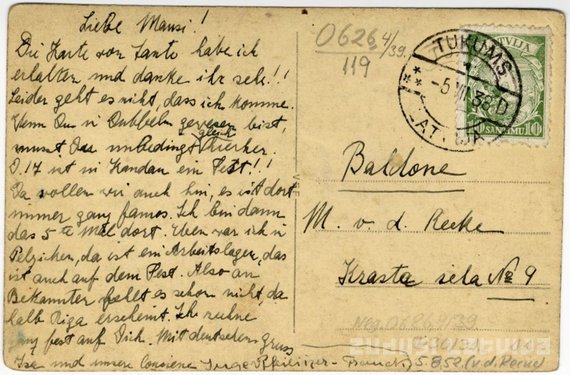 Liebe Mausi!
Die Karte von Tante habe ich
erhalten und danke ihr sehr!!
Leider geht es nicht, dass ich komme.
Wenn Du in Dubbeln gewesen bist,
musst Du unbedingt gleich hierher.
D. 17 ist in Kandau ein Fest!!
Da wollen wir auch hin, es ist dort
immer ganz famos. Ich bin dann
das 5te Mal dort. Eben war ich in
da ist ein Arbeitslager, das
ist auch auf dem Fest. Also an
Bekannten fehlt es schon nicht, da
halb Riga erscheint. Ich rechne
ganz fest auf Dich. Mit deutschem Gruss
Ilse und unsere Cousine Inge
0626 4/39.
119
TUKUMS
-5 VII 38 D
LATVIJA
LATVIJA
10 SANTIMU 10
Baldone
M. v. d. Recke
Krasta iela № 9
Neg. 0626 4/39
5852 (v.d. Recke)